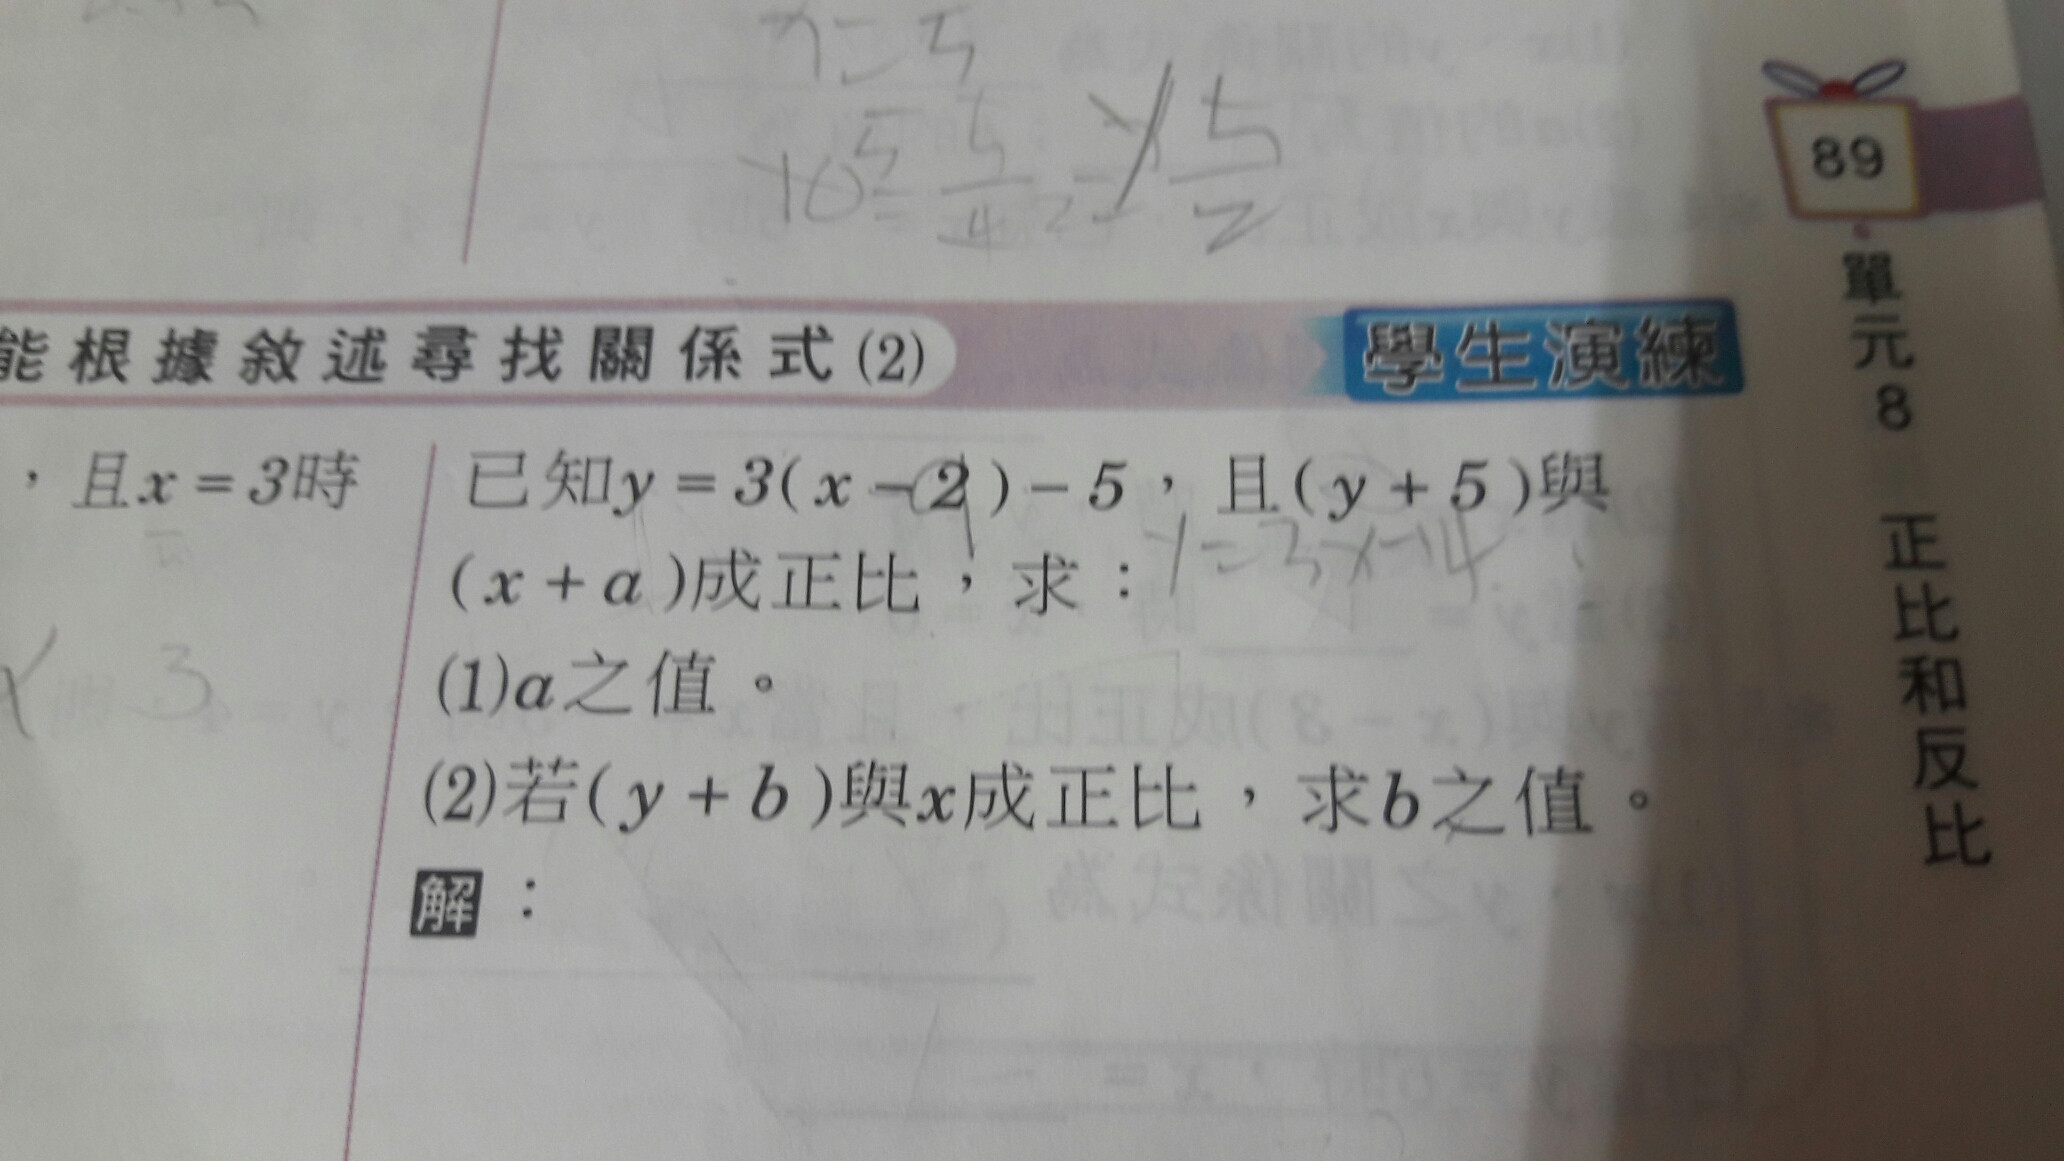 x=5
89
單元8 正比和反比
能根據敘述尋找關係式(2)
學生演練
，且x=3時
已知y=3(x-2)-5，且(y+5)與
y=3x-14
(x+a)成正比，求：
(1)a之值。
3
(2)若(y+b)與x成正比，求b之值。
解：